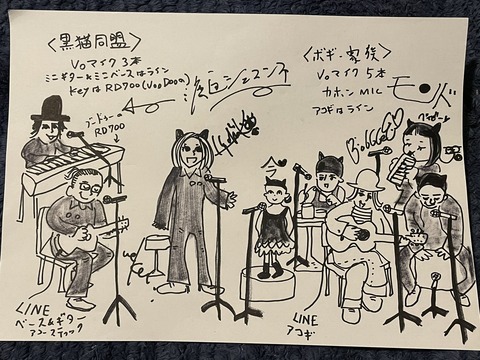 〈黒猫同盟〉
Voマイク 3本
ミニギター&ミニベースはライン
KeyはRD700(VooDooの)
ブードゥーの
RD700
LINE
ベース&ギター
アコースティック
〈ボギー家族〉
Voマイク 5本
カホン MIC
アコギはライン
モンド
今
LINE
アコギ